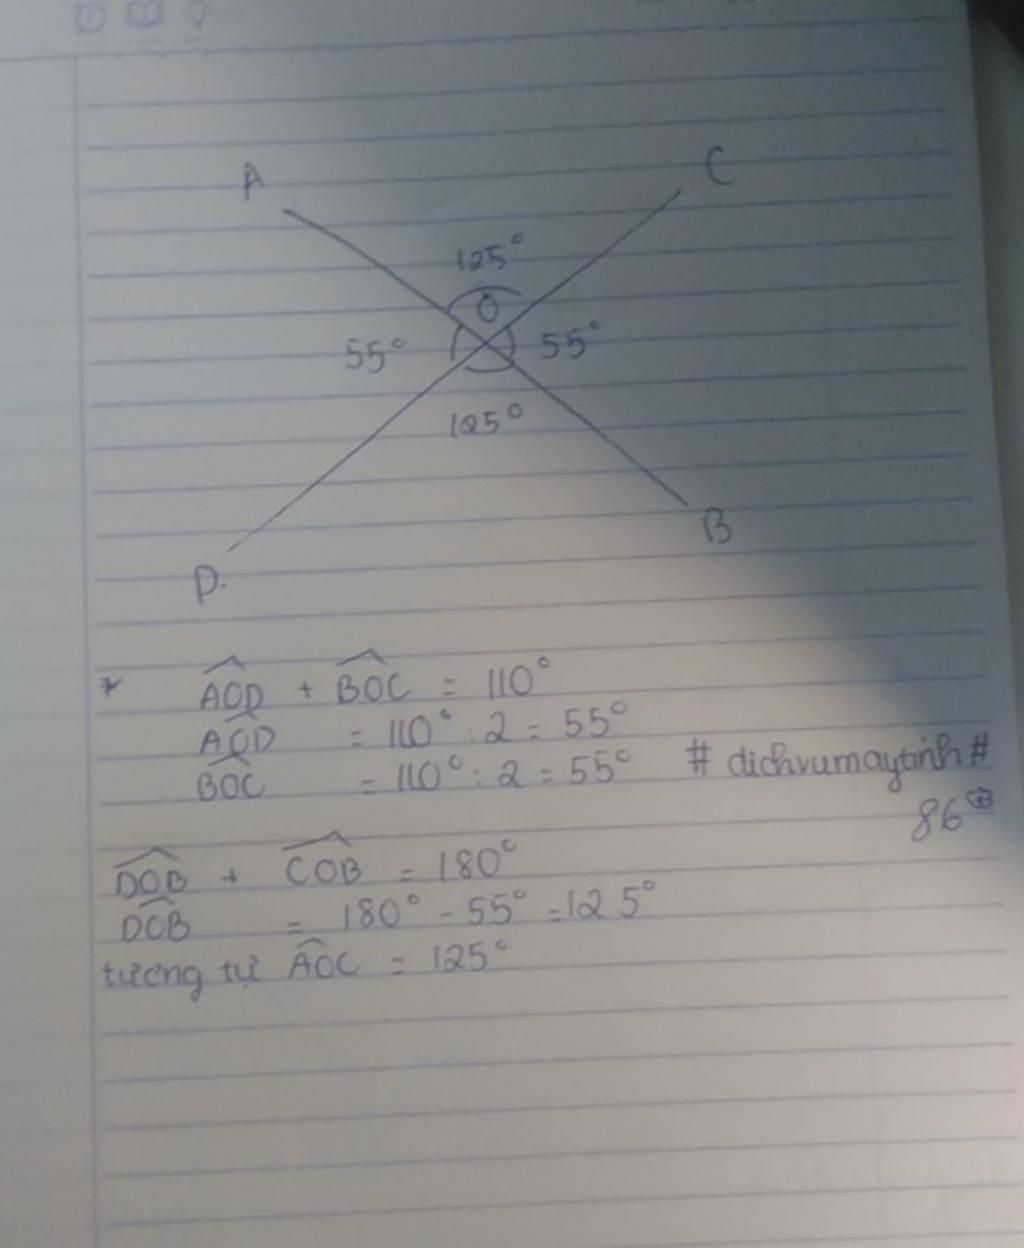 A
C
125°
O
55°
55°
125°
B
D.
* AOD + BOC = 110°
AOD = 110° : 2 = 55°
BOC = 110° : 2 = 55° # dichvumaytinh#
86
DOB + COB = 180°
DOB = 180° - 55° = 125°
tương tự AOC = 125°